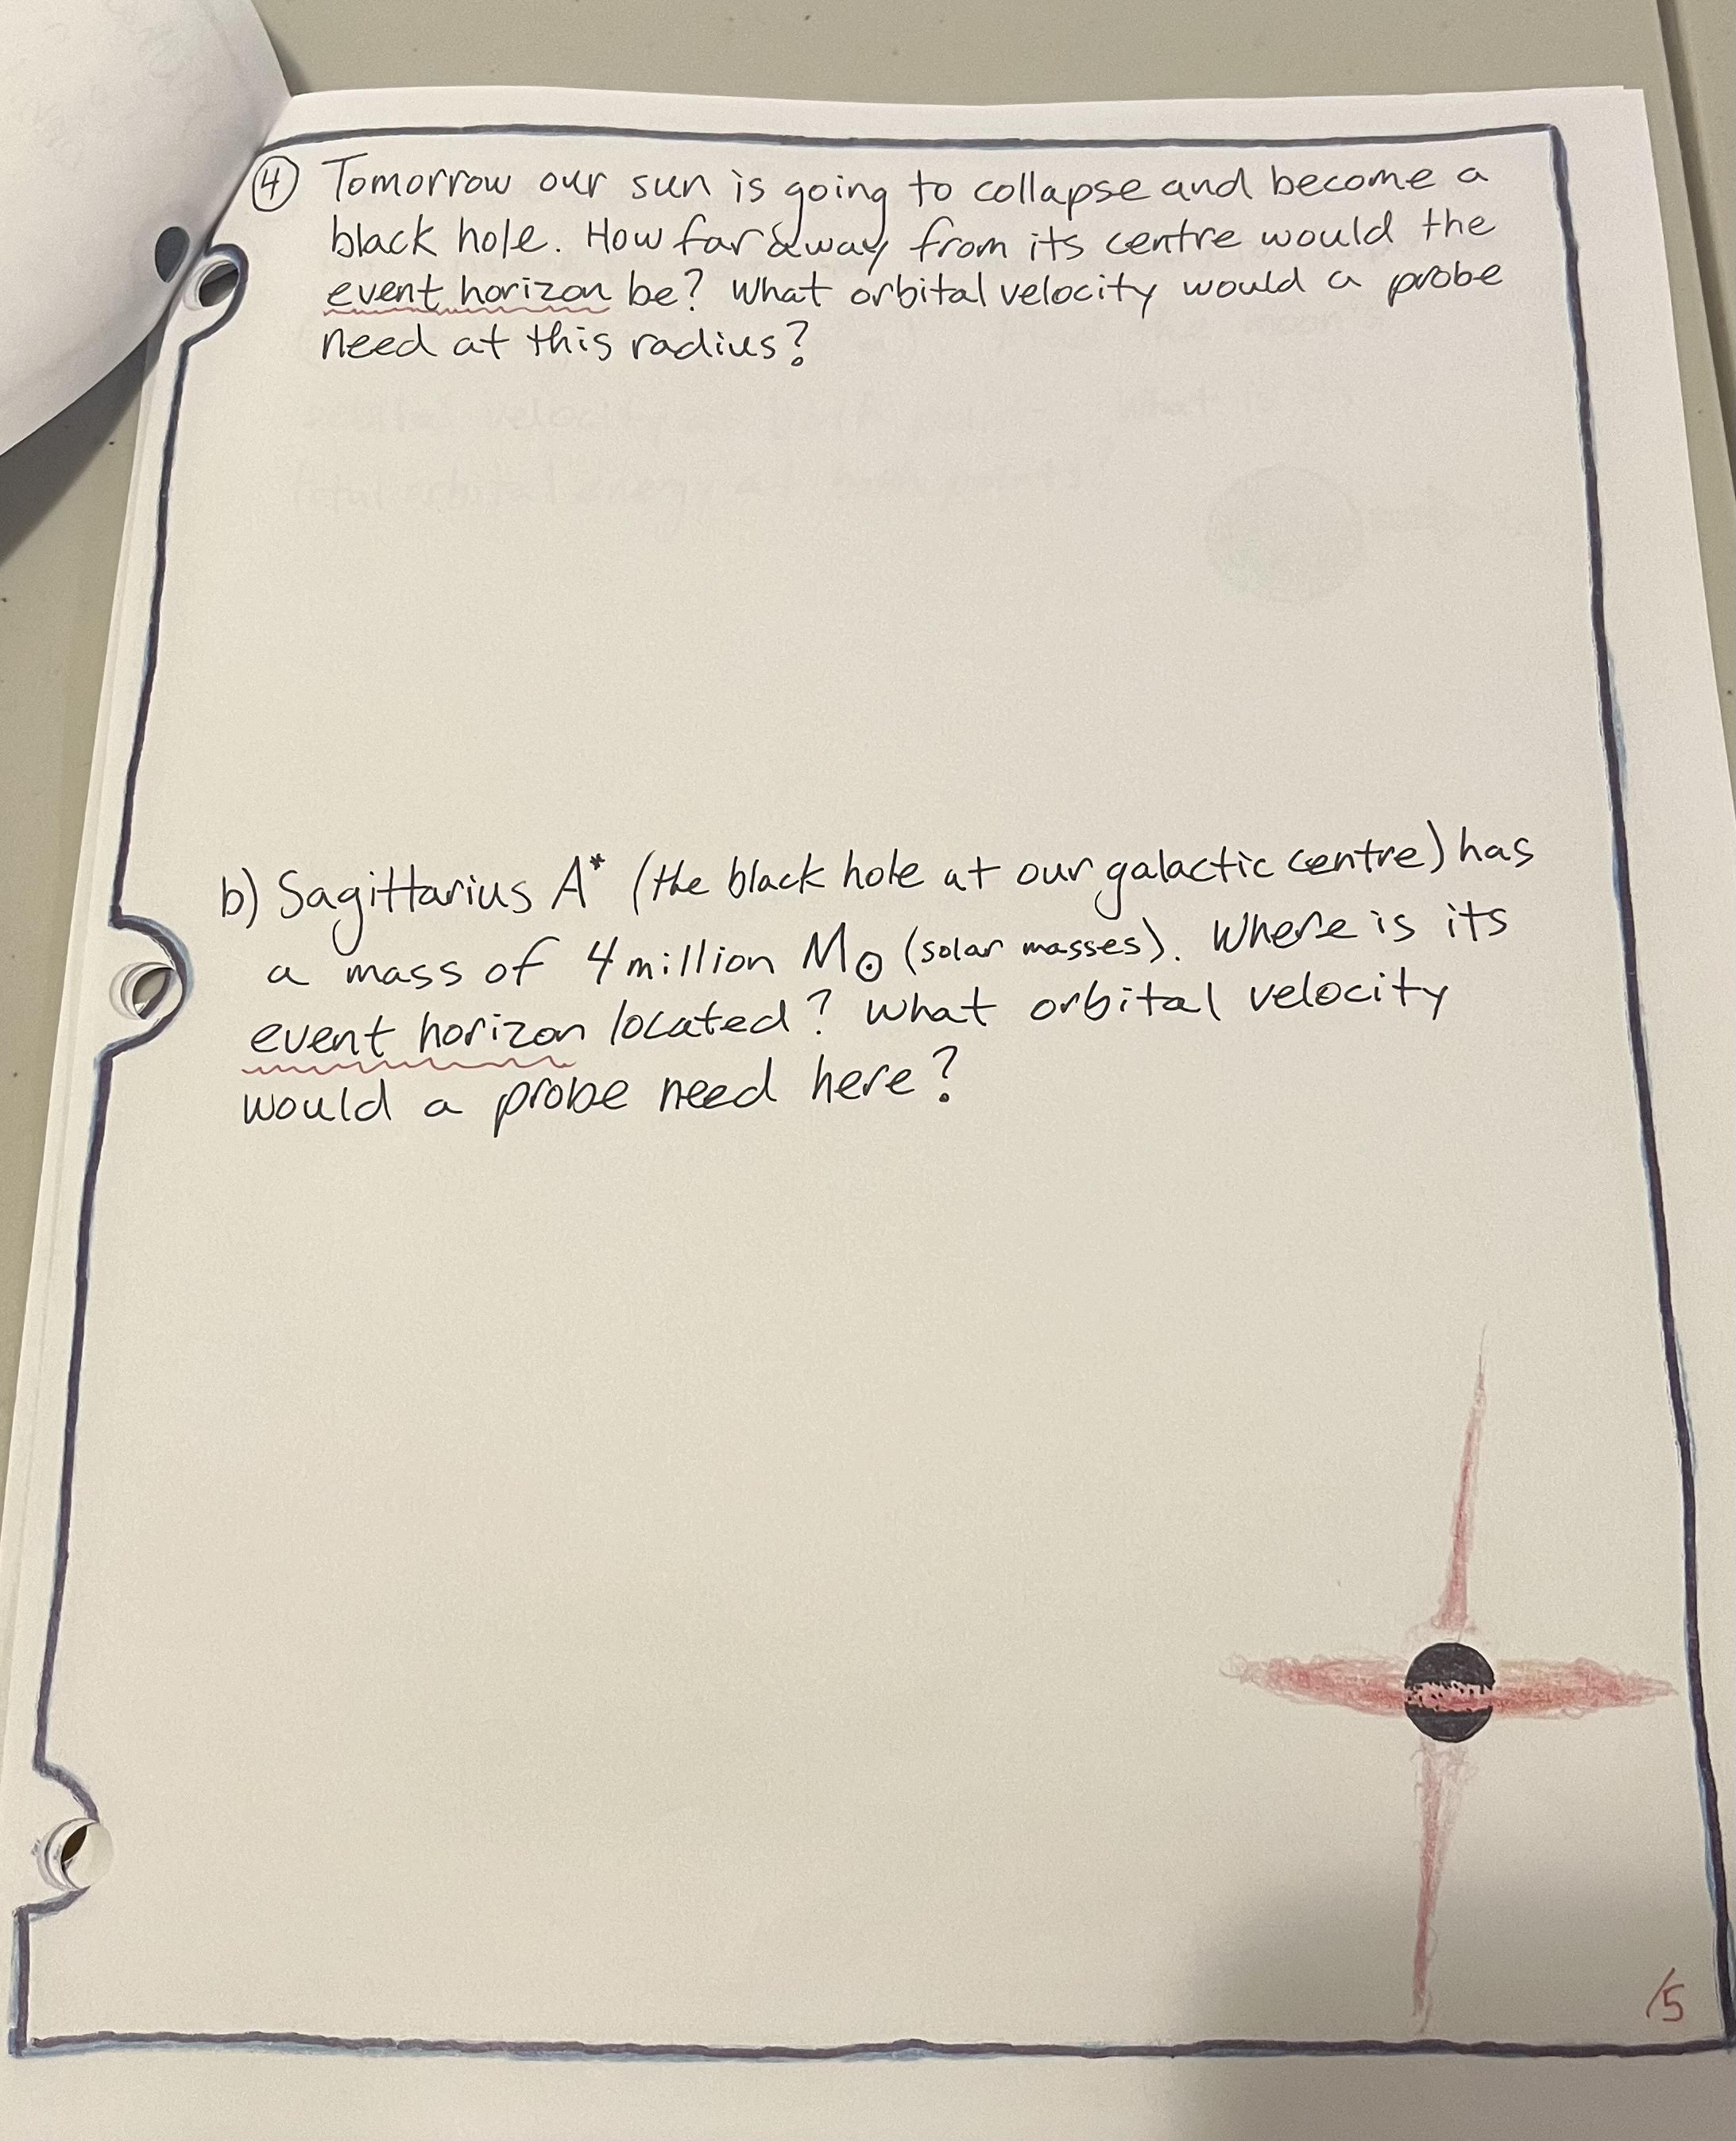 ④ Tomorrow our sun is going to collapse and become a
black hole. How far away from its centre would the
event horizon be? What orbital velocity would a probe
need at this radius?
b) Sagittarius A* (the black hole at our galactic centre) has
a mass of 4 million M⊙ (solar masses). Where is its
event horizon located? What orbital velocity
would a probe need here?
/5